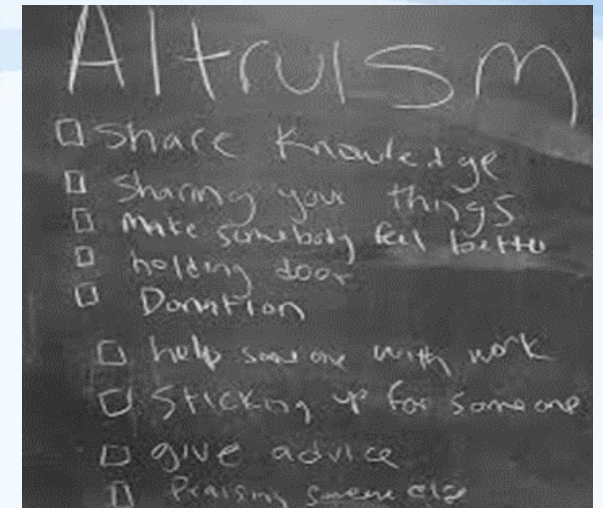 Altruism
Share Knowledge
Sharing your things
Make somebody feel better
holding door
Donation
help someone with work
Sticking up for someone
give advice
Praising someone else